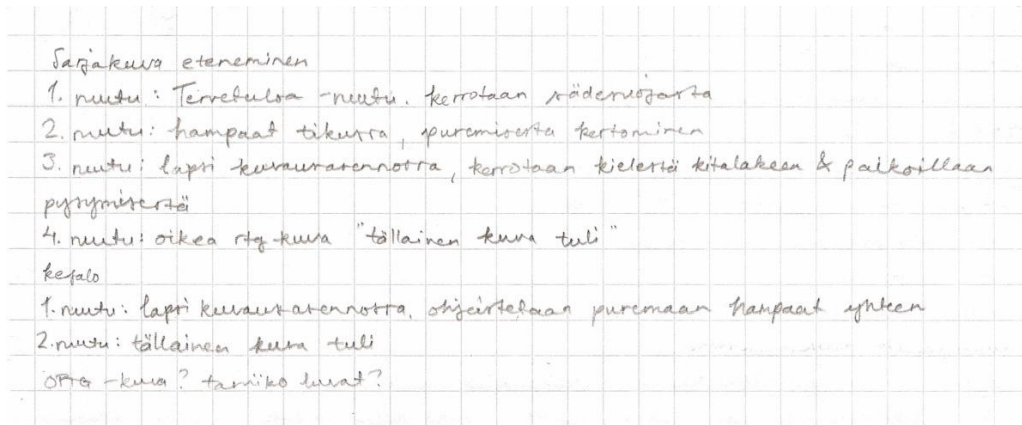 Sarjakuva eteneminen
1. ruutu: Tervetuloa -ruutu. kerrotaan sädesuojasta
2. ruutu: hampaat tikussa, puremisesta kertominen
3. ruutu: lapsi kuvausasennossa, kerrotaan kielestä kitalakeen & paikoillaan
pysymisestä
4. ruutu: oikea rtg-kuva "tällainen kuva tuli"
kefalo
1. ruutu: lapsi kuvausasennossa, ohjeistetaan puremaan hampaat yhteen
2. ruutu: tällainen kuva tuli
OPTG -kuva? kuvat?